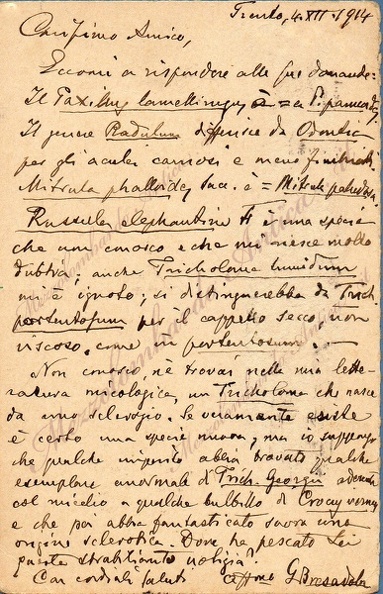 Trento, 4. XII. 1914
Carissimo Amico,
Eccomi a rispondere alle sue domande:
Il Taxillus lamellirugus è = a P. panuoides.
Il genere Radulum differisce da Odontia
per gli aculei carnosi e meno fimbriati.
Mitrula phalloides Sacc. è = Mitrula paludosa.
Russula elephantina Fr è una specie
che non conosco e che mi riesce molto
dubbia; anche Tricholoma luridum
mi è ignoto; si distinguerebbe da Trich.
portentosum per il cappello secco, non
viscoso, come in portentosum.
Non conosco, nè trovai nella mia lette-
ratura micologica, un Tricholoma che nasce
da uno sclerozio. Se veramente esiste
è certo una specie nuova, ma io suppongo
che qualche imperito abbia trovato qualche
esemplare anormale di Trich. Georgii aderente
col micelio a qualche bulbillo di Crocus vernus
e che poi abbia fantasticato sovra una
origine sclerotica. Dove ha pescato Lei
questa strabiliante notizia?
Con cordiali saluti affmo G Bresadola